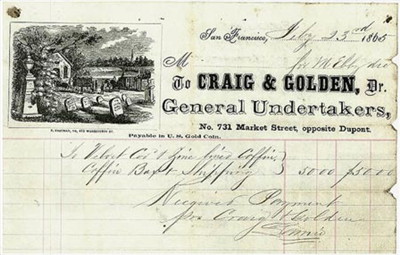 San Francisco, July 23rd 1865
M
To CRAIG & GOLDEN, Dr.
General Undertakers,
No. 731 Market Street, opposite Dupont.
Payable in U. S. Gold Coin.
To Velvet Cov'd & fine lined Coffin
Coffin Box & Shipping 50 00 $50.00
Received Payment
Craig & Golden